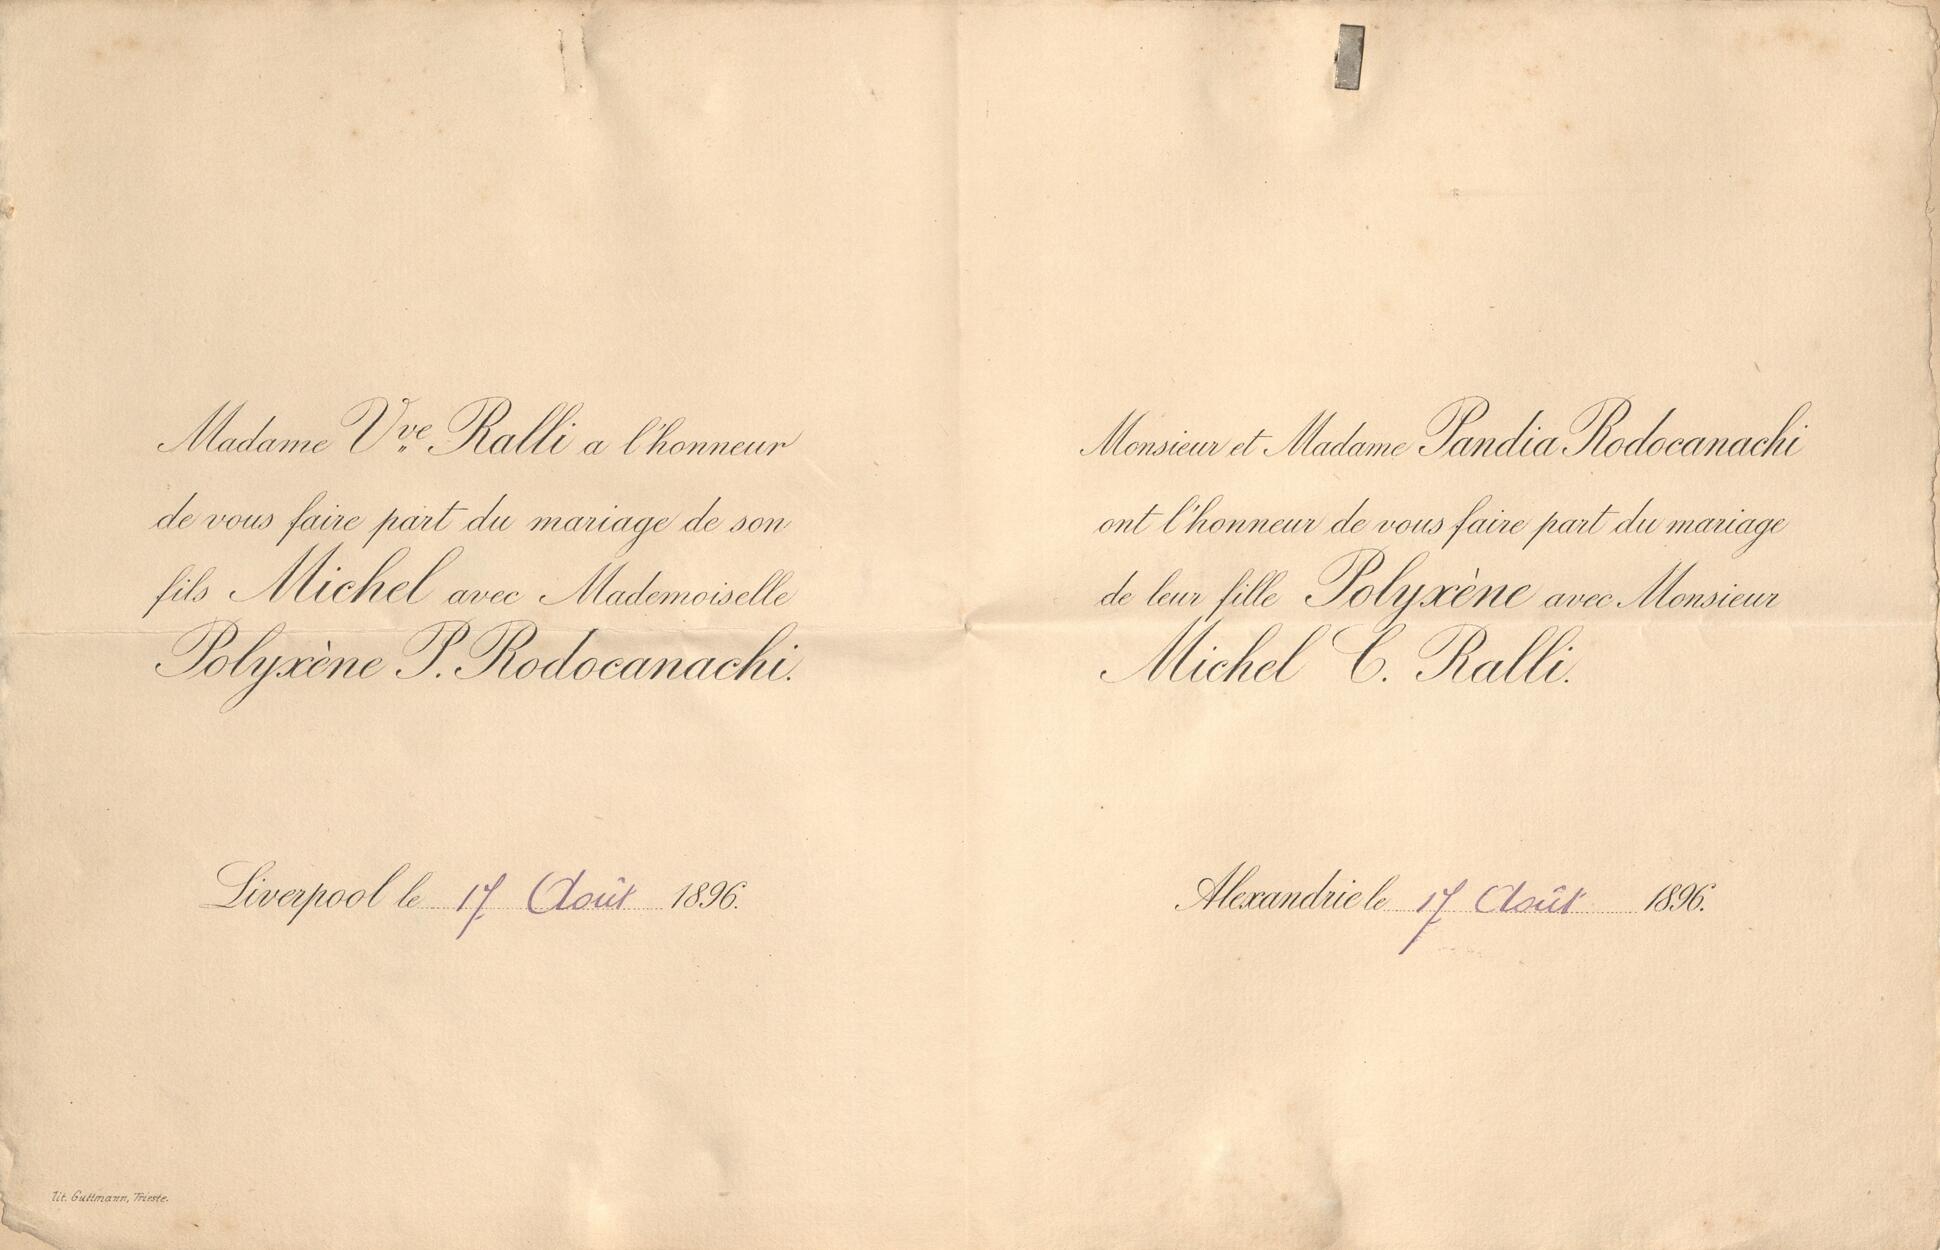 Madame Vve Ralli a l'honneur
de vous faire part du mariage de son
fils Michel avec Mademoiselle
Polyxène P. Rodocanachi.
Liverpool le 17 Août 1896.
Lit. Guttmann, Trieste.
Monsieur et Madame Pandia Rodocanachi
ont l'honneur de vous faire part du mariage
de leur fille Polyxène avec Monsieur
Michel C. Ralli.
Alexandrie le 17 Août 1896.